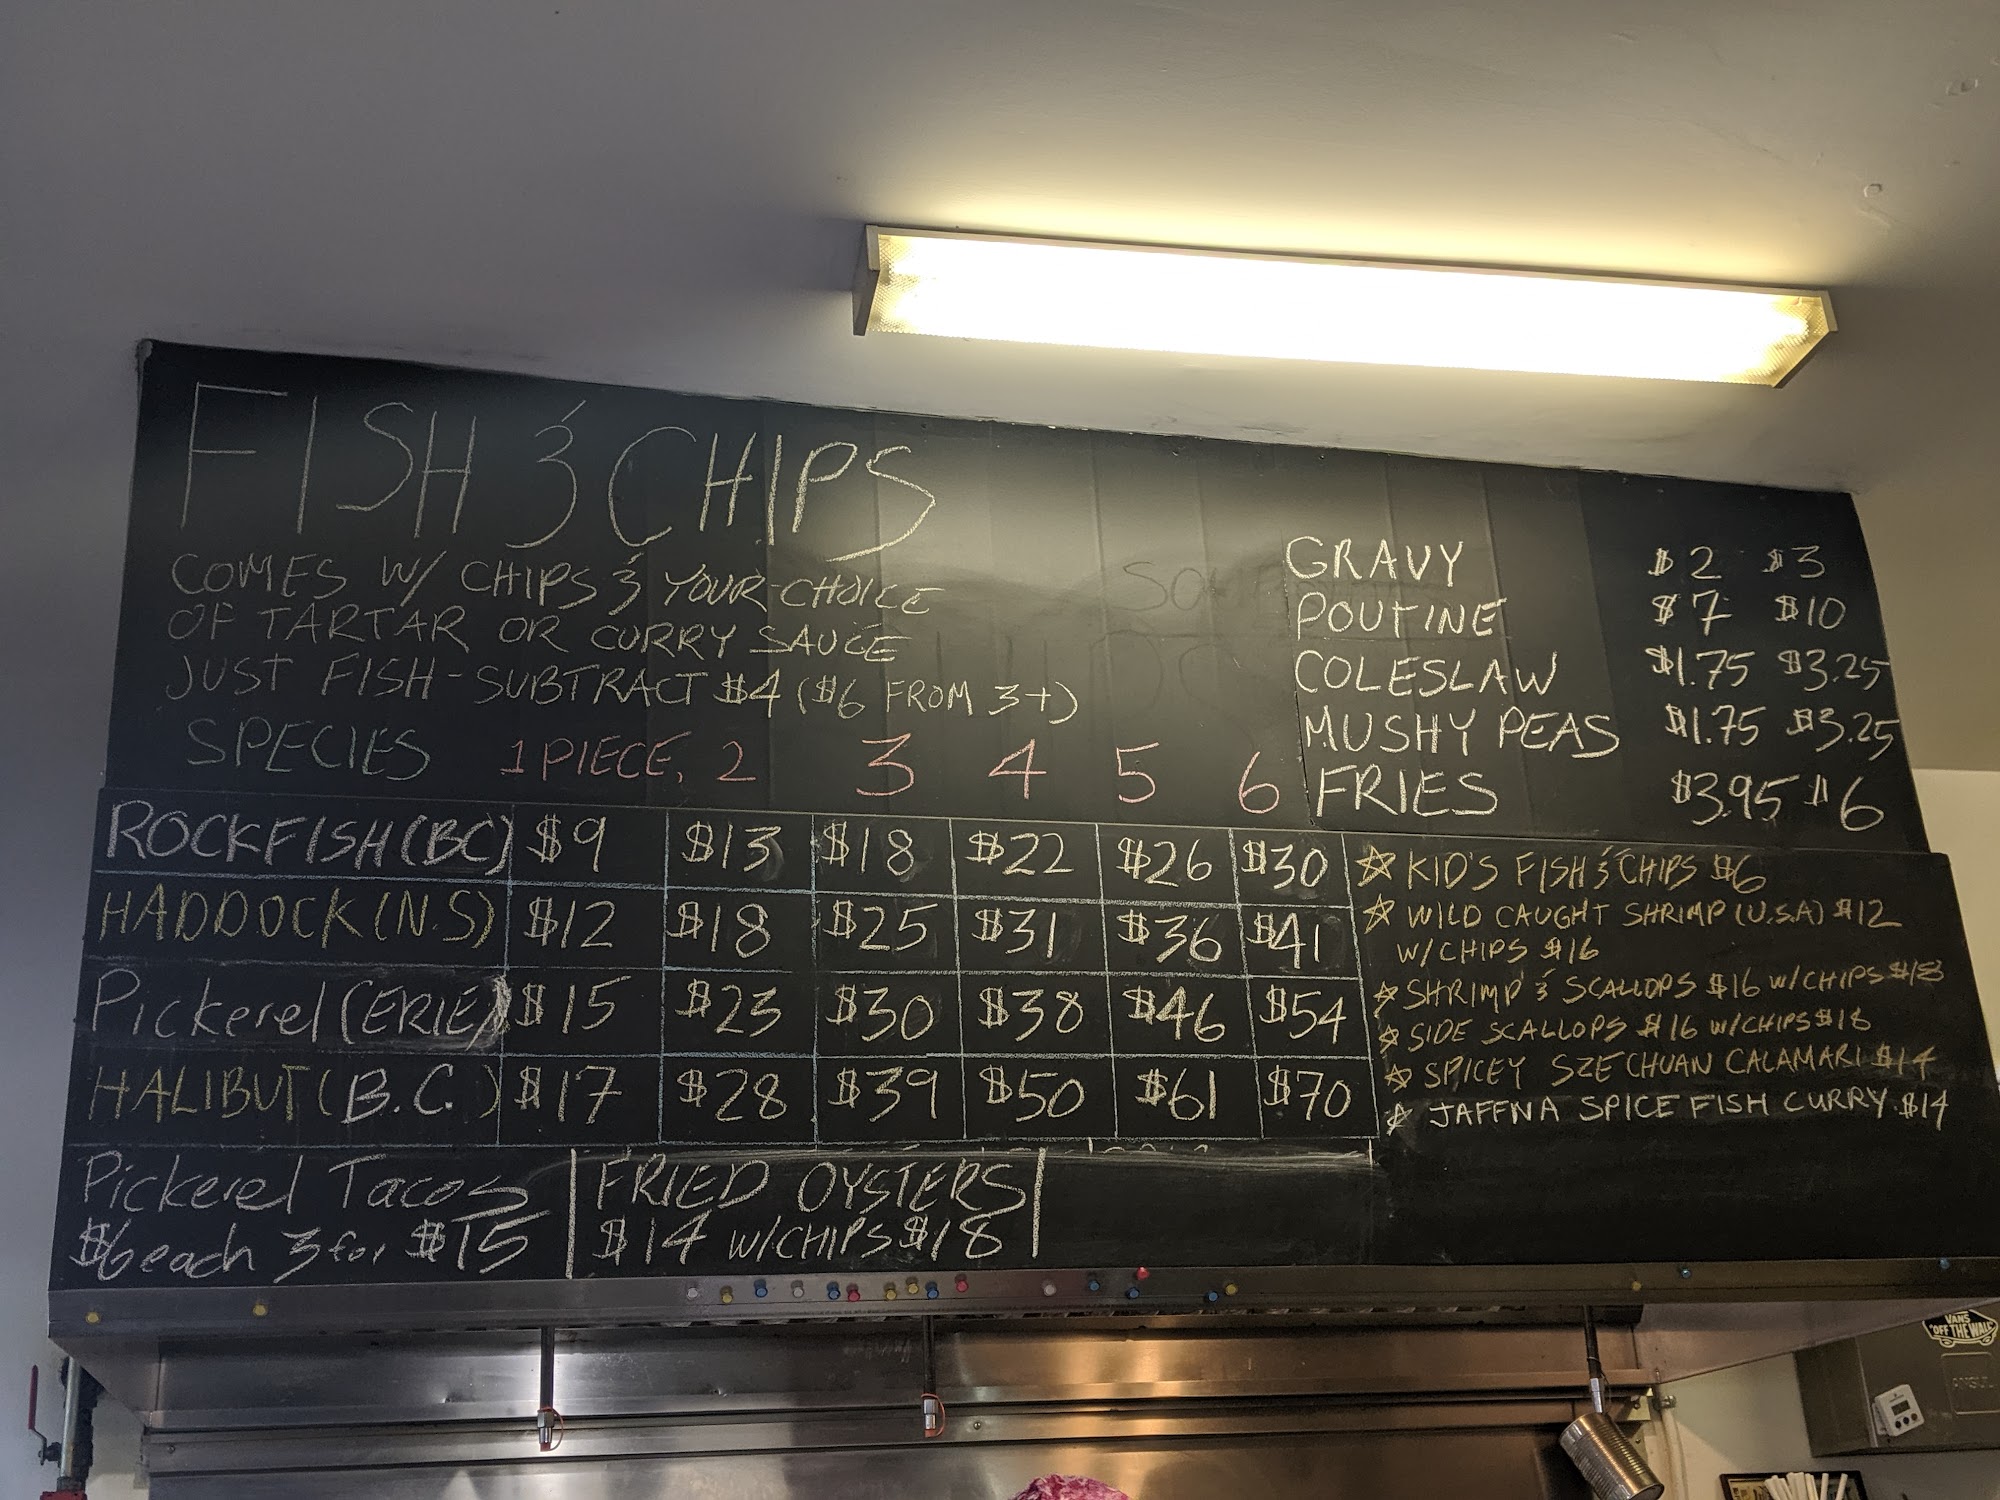 FISH & CHIPS
COMES W/ CHIPS & YOUR CHOICE
OF TARTAR OR CURRY SAUCE
JUST FISH - SUBTRACT $4 ($6 FROM 3+)
SPECIES 1 PIECE, 2 3 4 5 6
ROCKFISH (BC) $9 $13 $18 $22 $26 $30
HADDOCK (N.S) $12 $18 $25 $31 $36 $41
Pickerel (ERIE) $15 $23 $30 $38 $46 $54
HALIBUT (B.C.) $17 $28 $39 $50 $61 $70
Pickerel Tacos
$6 each 3 for $15
FRIED OYSTERS
$14 W/CHIPS $18
GRAVY $2 $3
POUTINE $7 $10
COLESLAW $1.75 $3.25
MUSHY PEAS $1.75 $3.25
FRIES $3.95 $6
☆ KID'S FISH & CHIPS $6
☆ WILD CAUGHT SHRIMP (U.S.A) $12
W/CHIPS $16
☆ SHRIMP & SCALLOPS $16 W/CHIPS $18
☆ SIDE SCALLOPS $16 W/CHIPS $18
☆ SPICEY SZECHUAN CALAMARI $14
☆ JAFFNA SPICE FISH CURRY $14
VANS
"OFF THE WALL"
ANSUL